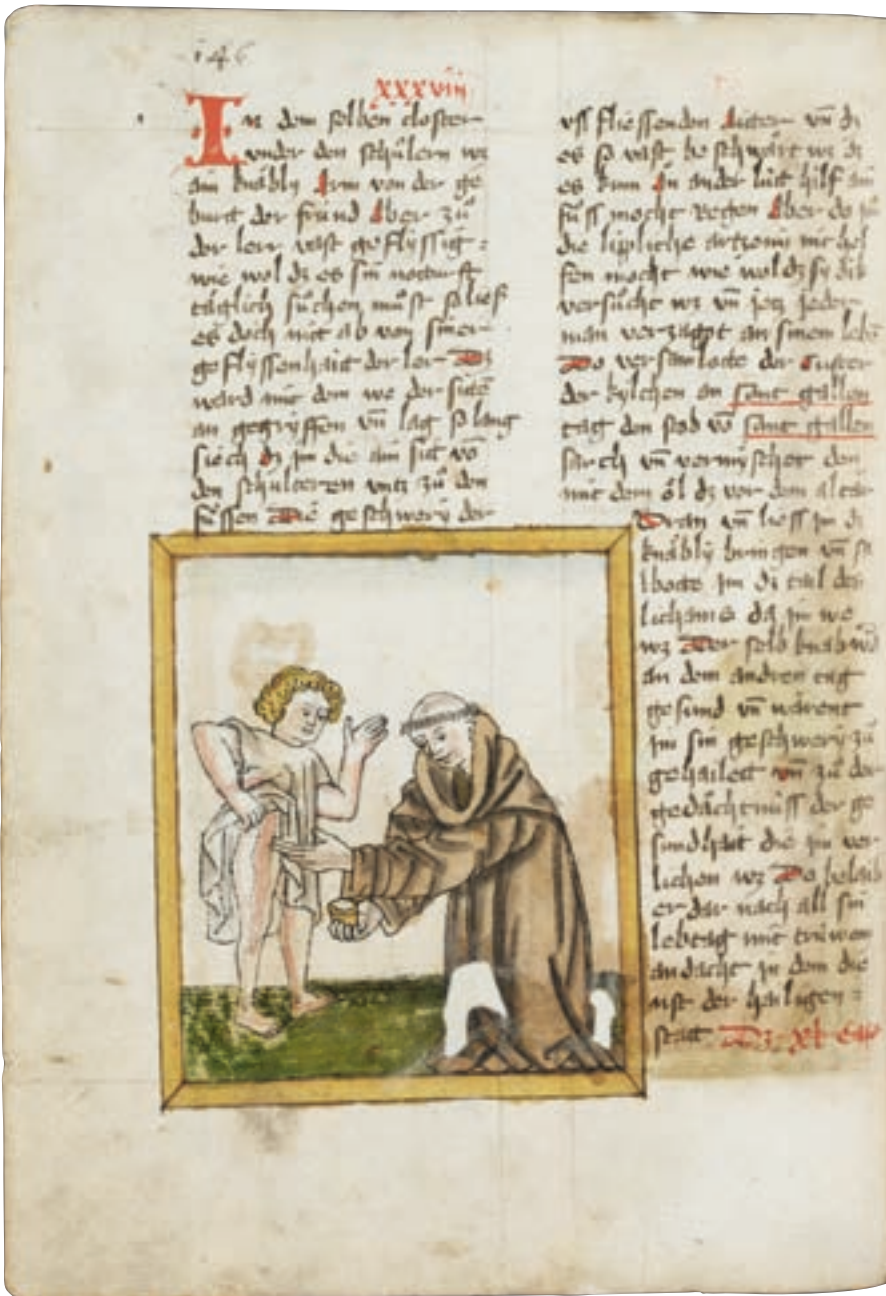 146
xxxviii
In dem selben closter
under den schůlern wz
ain knäbly Arm von der ge
burt der frund Aber zů
der lerr vast geflyssig =
wie wol dz es sin noturft
täglich sůchen můst so lief
es doch nit ab von siner
geflyssenhait der ler Dz
ward mit dem we der siten
an gegryffen vñ lag so lang
siech dz jm die ain sit vō
den schulteren untz zů den
fůssen Die geschwery der
uss fliessenden Aitter vñ dz
es so vast beschwärt wz dz
es kum an ander lüt hilf ain
fůss mocht regen Aber do jm
die lipliche artzeni nit hel
fen mocht wie wol dz sy dik
versůcht wz vñ jetz jeder
man verzagt an sinem lebē
Do versamlote der Custer
der kylchen an sant gallen
tag den stob vō sant gallen
sarch vñ vermischet den
mit dem öl dz vor dem altar
bran vñ liess jm dz
knäbly bringen vñ sa
lbote jm di tail des
lichams da jm we
wz Der selb knab wd
an dem andren tag
gesund vñ wärent
jm sin geschwery zů
gehailet vñ zů der
gedächtnüss der ge
sundhait die jm ver
lichen wz Do belaib
er dar nach all sin
lebtag mit trüwen
andacht jn dem die
nst der hailigen =
statt Dz xl